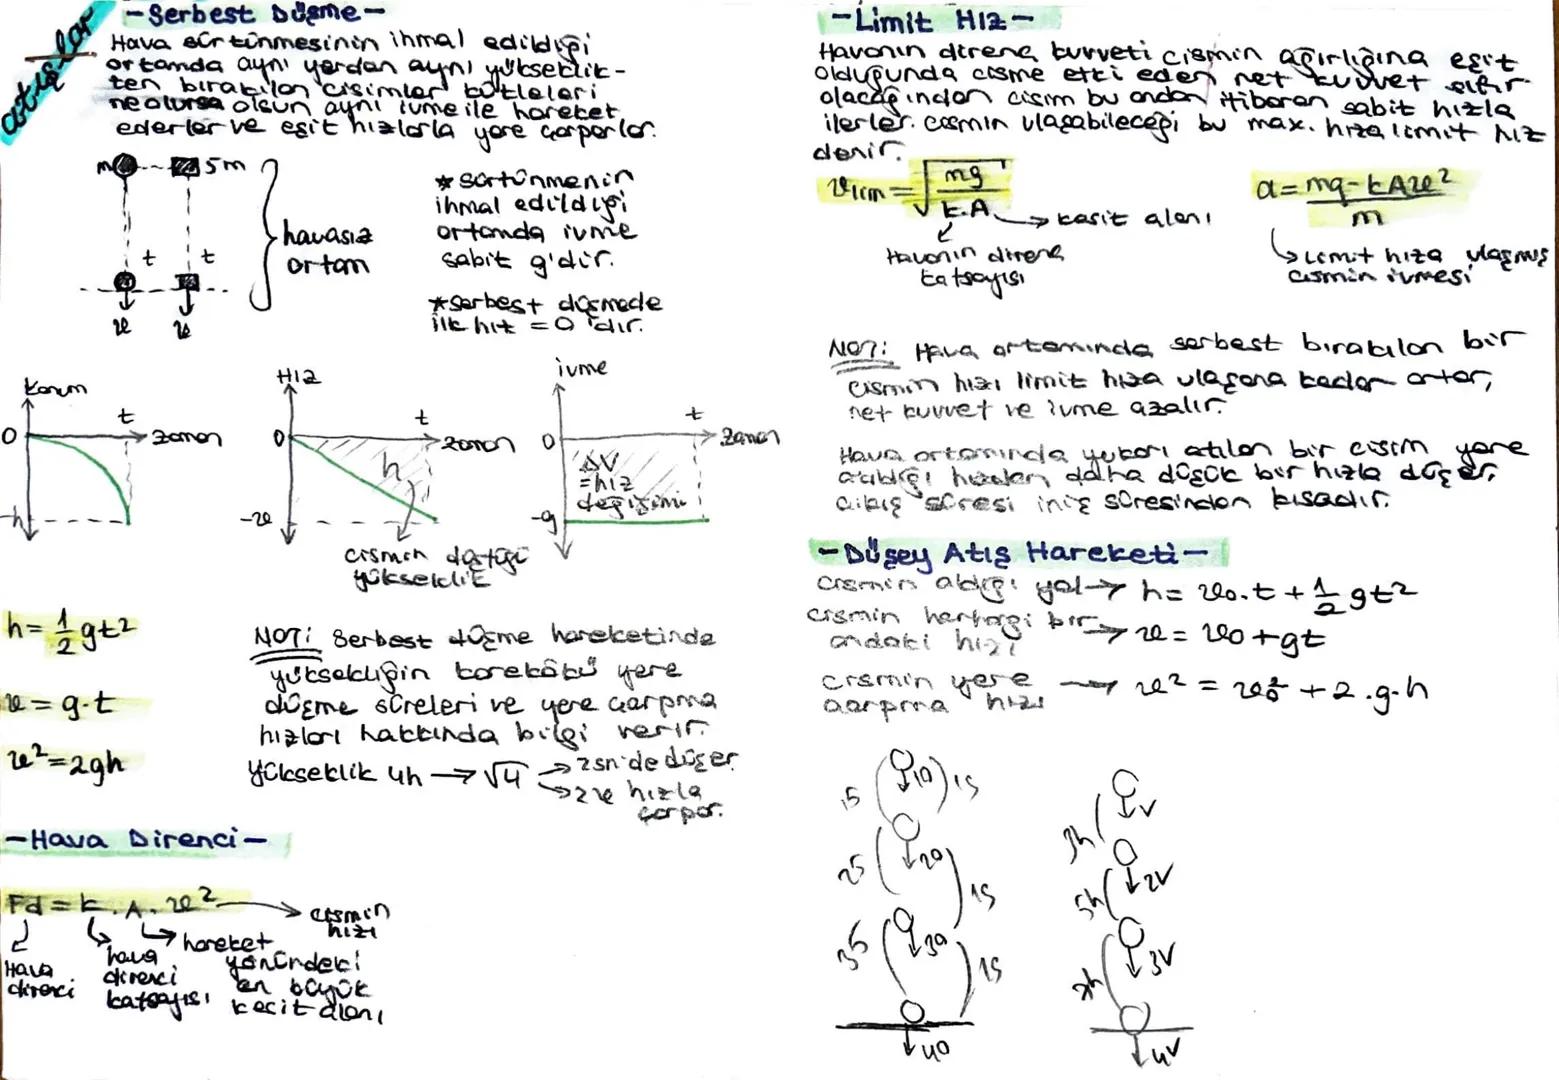 atışlar
-Serbest Düşme-
Hava sürtünmesinin ihmal edildiği
ortamda aynı yerden aynı yükseklik-
ten bırakılan cisimler kütleleri
ne olursa olsun aynı ivme ile hareket
ederler ve eşit hızlarla yere çarparlar.
m 5m
t t
v v
havasız
ortam
* sürtünmenin
ihmal edildiği
ortamda ivme
sabit g'dir.
* serbest düşmede
ilk hız = 0 'dır.
Konum
0 t zaman
-h
Hız
0 t zaman
h
-v
cismin düştüğü
yükseklik
ivme
0 t zaman
ΔV
=hız
değişimi
-g
h = 1/2 gt²
v = g.t
v² = 2gh
NOT: Serbest düşme hareketinde
yüksekliğin karekökü yere
düşme süreleri ve yere çarpma
hızları hakkında bilgi verir.
yükseklik 4h → √4 → 2sn'de düşer
→ 2v hızla
çarpar.
-Hava Direnci-
Fd = k . A . v² → cismin
hızı
Hava
direnci
hava
direnci
katsayısı
hareket
yönündeki
en büyük
kesit alanı
-Limit Hız-
Havanın direnç kuvveti cismin ağırlığına eşit
olduğunda cisme etki eden net kuvvet sıfır
olacağından cisim bu andan itibaren sabit hızla
ilerler. cismin ulaşabileceği bu max. hıza limit hız
denir.
vlim = √mg/k.A → kesit alanı
Havanın direnç
katsayısı
a = mg - kAv² / m
→ Limit hıza ulaşmış
cismin ivmesi
NOT: Hava ortamında serbest bırakılan bir
cismin hızı limit hıza ulaşana kadar artar,
net kuvvet ve ivme azalır.
Hava ortamında yukarı atılan bir cisim yere
atıldığı hızdan daha düşük bir hızla düşer,
çıkış süresi iniş süresinden kısadır.
-Düşey Atış Hareketi-
cismin aldığı yol → h = v0.t + 1/2 gt²
cismin herhangi bir
andaki hızı → v = v0 + gt
cismin yere
çarpma hızı → v² = v0² + 2.g.h
15 10 1s
25 20 1s
35 30 1s
40
V
3h
2V
5h
3V
7h
4V